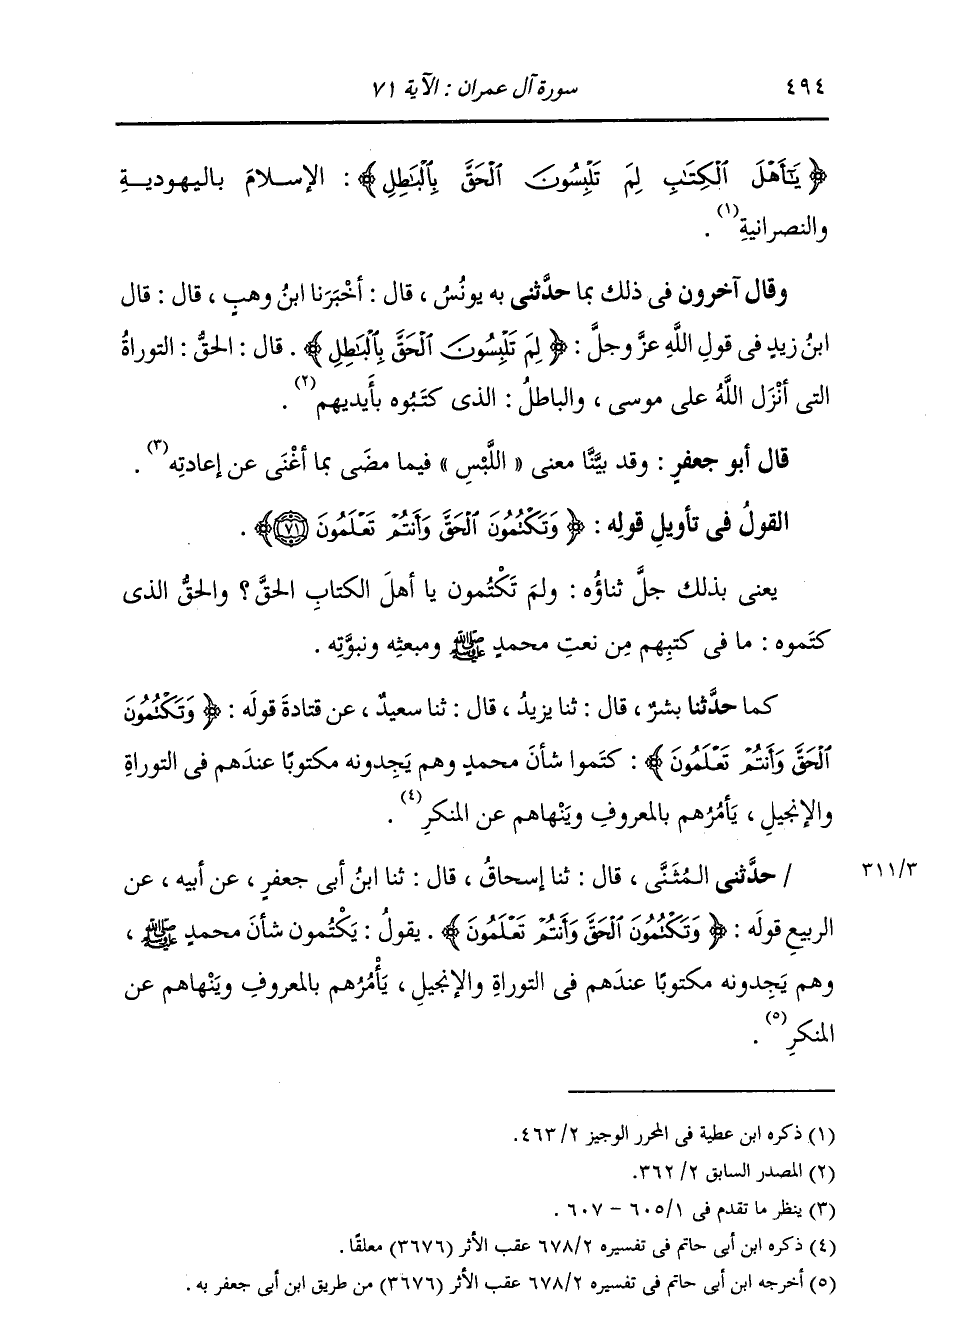 ٤٩٤ سورة آل عمران : الآية ٧١
﴿ يَٰٓأَهْلَ ٱلْكِتَٰبِ لِمَ تَلْبِسُونَ ٱلْحَقَّ بِٱلْبَٰطِلِ ﴾ : الإسلامَ باليهوديةِ
والنصرانيةِ(١) .
وقال آخرون فى ذلك بما حدَّثنى به يونُسُ ، قال : أخْبَرَنا ابنُ وهبٍ ، قال : قال
ابنُ زيدٍ فى قولِ اللَّهِ عزَّ وجلَّ : ﴿ لِمَ تَلْبِسُونَ ٱلْحَقَّ بِٱلْبَٰطِلِ ﴾ . قال : الحقُّ : التوراةُ
التى أنْزَل اللَّهُ على موسى ، والباطلُ : الذى كتَبُوه بأيديهم(٢) .
قال أبو جعفرٍ : وقد بيَّنَّا معنى « اللَّبْسِ » فيما مضَى بما أغْنَى عن إعادتِه(٣) .
القولُ فى تأويلِ قولِه : ﴿ وَتَكْتُمُونَ ٱلْحَقَّ وَأَنتُمْ تَعْلَمُونَ ﴿٧١﴾ ﴾ .
يعنى بذلك جلَّ ثناؤُه : ولمَ تَكْتُمون يا أهلَ الكتابِ الحقَّ ؟ والحقُّ الذى
كتَموه : ما فى كتبِهم مِن نعتِ محمدٍ ﷺ ومبعثِه ونبوَّتِه .
كما حدَّثنا بشرٌ ، قال : ثنا يزيدُ ، قال : ثنا سعيدٌ ، عن قتادةَ قولَه : ﴿ وَتَكْتُمُونَ
ٱلْحَقَّ وَأَنتُمْ تَعْلَمُونَ ﴾ : كتَموا شأنَ محمدٍ وهم يَجِدونه مكتوبًا عندَهم فى التوراةِ
والإنجيلِ ، يَأمُرُهم بالمعروفِ ويَنْهاهم عن المنكرِ(٤) .
/ حدَّثنى المُثَنَّى ، قال : ثنا إسحاقُ ، قال : ثنا ابنُ أبى جعفرٍ ، عن أبيه ، عن ٣١١/٣
الربيعِ قولَه : ﴿ وَتَكْتُمُونَ ٱلْحَقَّ وَأَنتُمْ تَعْلَمُونَ ﴾ . يقولُ : يَكْتُمون شأنَ محمدٍ ﷺ ،
وهم يَجِدونه مكتوبًا عندَهم فى التوراةِ والإنجيلِ ، يَأْمُرُهم بالمعروفِ ويَنْهاهم عن
المنكرِ(٥) .
(١) ذكره ابن عطية فى المحرر الوجيز ٤٦٣/٢.
(٢) المصدر السابق ٢/ ٣٦٢.
(٣) ينظر ما تقدم فى ٦٠٥/١ - ٦٠٧ .
(٤) ذكره ابن أبى حاتم فى تفسيره ٦٧٨/٢ عقب الأثر (٣٦٧٦) معلقًا.
(٥) أخرجه ابن أبى حاتم فى تفسيره ٦٧٨/٢ عقب الأثر (٣٦٧٦) من طريق ابن أبى جعفر به .